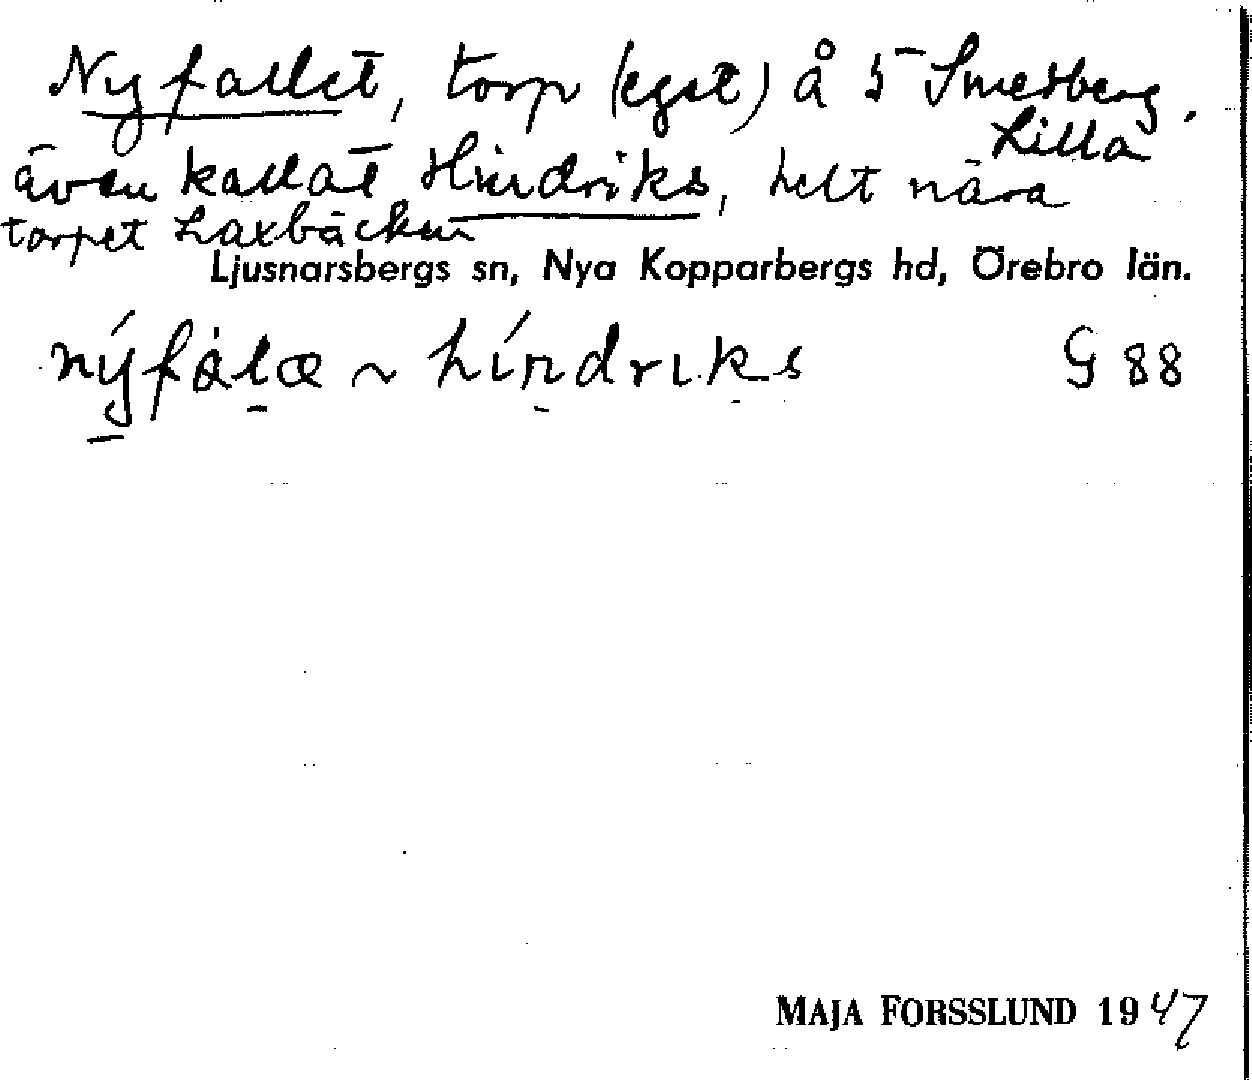 Nyfallet, torp (eget) å 5 Smedberg,
även kallat Hindriks, helt nära Lilla
torpet Laxbäcken
Ljusnarsbergs sn, Nya Kopparbergs hd, Örebro län.
nýfalæ ~ híndrıks G 88
MAJA FORSSLUND 1947